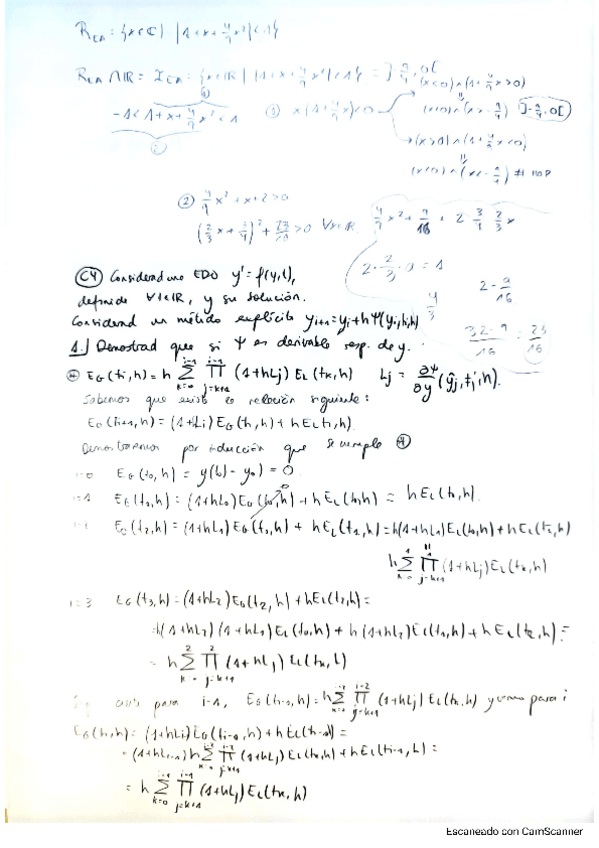 R_CA = {x∈ℂ | |1+x+4/9 x²|<1}
R_CA ∩ IR = I_CA = {x∈IR | |1+x+4/9 x²|<1} = ]-9/4, 0[
(x<0) ∧ (1+4/9 x>0)
-1 < 1+x+4/9 x² < 1 ① x(1+4/9 x)<0
(x<0) ∧ (x>-9/4) ]-9/4, 0[
(x>0) ∧ (1+4/9 x<0)
② 4/9 x²+x+2>0
(2/3 x+3/4)²+23/16>0 ∀x∈IR.
4/9 x² + 9/16 + 2 · 3/4 · 2/3 x
2 · 2/3 · a = 1
2 - 9/16
32-9/16 = 23/16
C4 Considerad una EDO y'=f(y,t),
definida ∀t∈IR, y su solución.
Considerad un método explícito y_{i+1}=y_i+hΨ(y_i,t_i,h)
1.) Demostrad que si Ψ es derivable resp. de y.
E_G(t_i,h)=h Σ_{k=0}^{i-1} Π_{j=k+1}^{i-1} (1+hL_j) E_L(t_k,h) L_j = ∂Ψ/∂y (ŷ_j,t_j,h).
Sabemos que existe la relación siguiente:
E_G(t_{i+1},h)=(1+hL_i)E_G(t_i,h)+hE_L(t_i,h).
Demostraremos por inducción que se cumple
i=0 E_G(t_0,h) = y(t_0)-y_0 = 0
i=1 E_G(t_1,h) = (1+hL_0)E_G(t_0,h)+hE_L(t_0,h) = hE_L(t_0,h).
i=2 E_G(t_2,h) = (1+hL_1)E_G(t_1,h)+hE_L(t_1,h)=h(1+hL_1)E_L(t_0,h)+hE_L(t_1,h)
h Σ_{k=0}^{1} Π_{j=k+1}^{1} (1+hL_j)E_L(t_k,h)
i=3 E_G(t_3,h)=(1+hL_2)E_G(t_2,h)+hE_L(t_2,h)=
=h(1+hL_2)(1+hL_1)E_L(t_0,h)+h(1+hL_2)E_L(t_1,h)+hE_L(t_2,h)=
= h Σ_{k=0}^{2} Π_{j=k+1}^{2} (1+hL_j) E_L(t_k,h)
cierto para i-1, E_G(t_{i-1},h)=h Σ Π_{j=k+1}^{i-2} (1+hL_j)E_L(t_k,h) para i
E_G(t_i,h)=(1+hL_{i-1})E_G(t_{i-1},h)+hE_L(t_{i-1},h)=
=(1+hL_{i-1})h Σ Π_{j=k+1} (1+hL_j)E_L(t_k,h)+hE_L(t_{i-1},h)=
= h Σ_{k=0}^{i-1} Π_{j=k+1}^{i-1} (1+hL_j)E_L(t_k,h)
Escaneado con CamScanner